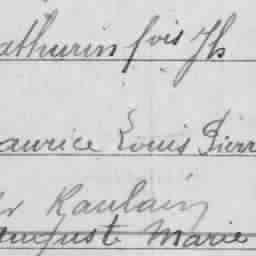 athurin fois Jh
aurice Louis Pierr
Raulain
auguste Marie